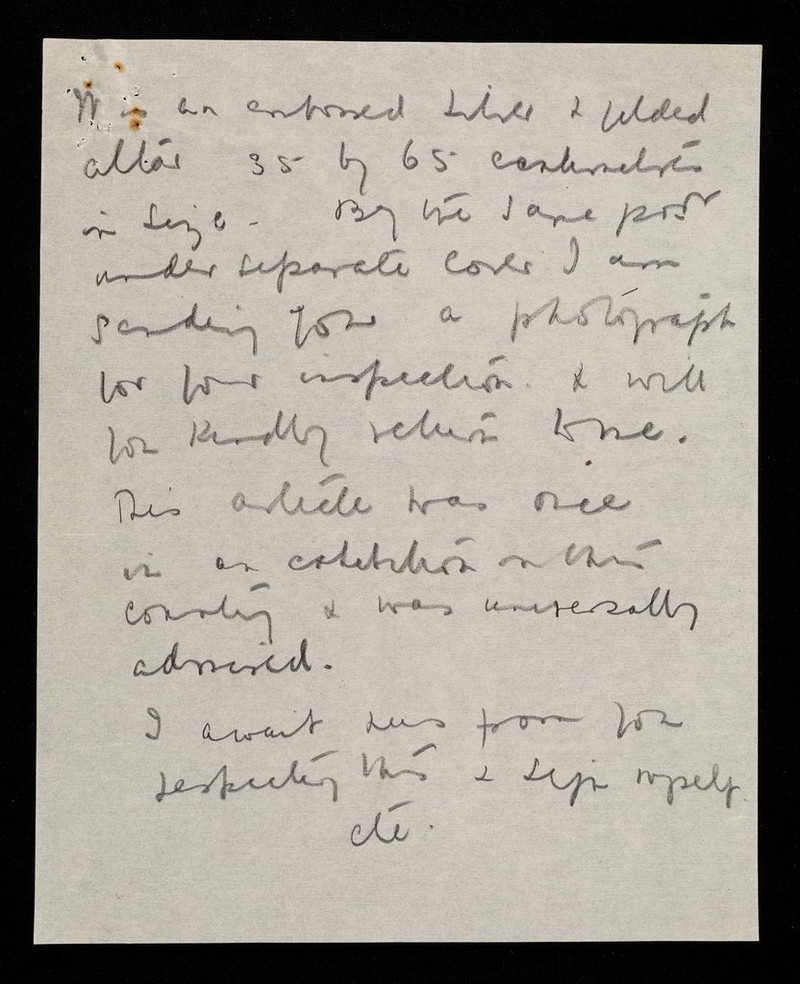 It is an embossed silver & gilded
altar 35 by 65 centimetres
in size - By the same post
under separate cover I am
sending you a photograph
for your inspection. & will
you kindly return to me.
This article was once
in an exhibition in this
country & was universally
admired.
I await news from you
respecting this & sign myself
etc.